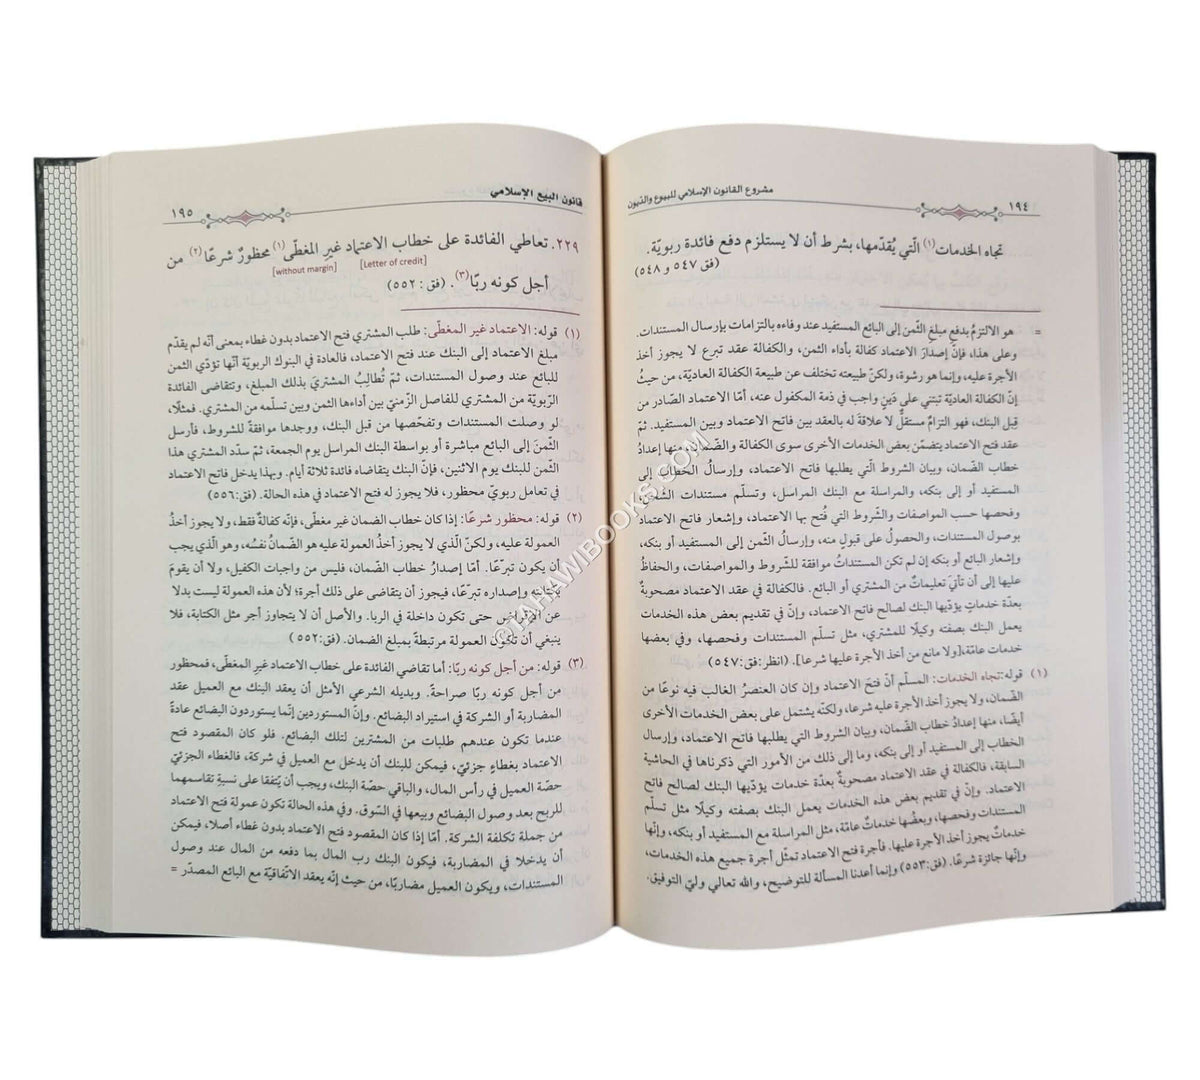 مشروع القانون الإسلامي للبيوع والديون
١٩٤
تجاه الخدمات (١) الّتي يُقدّمها، بشرط أن لا يستلزم دفع فائدة ربويّة.
(فق ٥٤٧ و ٥٤٨)
= هو الالتزمُ بدفعِ مبلغِ الثّمن إلى البائع المستفيد عند وفاءه بالتزامات بإرسال المستندات.
وعلى هذا، فإنّ إصدارَ الاعتماد كفالة بأداء الثمن، والكفالة عقد تبرع لا يجوز أخذ
الأجرة عليه، وإنما هو رشوة، ولكنّ طبيعته تختلف عن طبيعة الكفالة العاديّة، من حيثُ
إنّ الكفالة العاديّة تبتني على دَينٍ واجب في ذمة المكفول عنه، أمّا الاعتماد الصّادر من
قِبل البنك، فهو التزامٌ مستقلٌّ لا علاقة له بالعقد بين فاتح الاعتماد وبين المستفيد. ثمّ
عقد فتح الاعتماد يتضمّن بعض الخدمات الأخرى سوى الكفالة والضّمان، منها إعدادُ
خطاب الضّمان، وبيان الشروط الّتي يطلبها فاتح الاعتماد، وإرسالُ الخطاب إلى
المستفيد أو إلى بنكه، والمراسلة مع البنك المراسل، وتسلّم مستندات الشّحن
وفحصها حسب المواصفات والشّروط التي فُتح بها الاعتماد، وإشعار فاتح الاعتماد
بوصول المستندات، والحصول على قبولٍ منه، وإرسالُ الثمن إلى المستفيد أو بنكه،
وإشعار البائع أو بنكه إن لم تكن المستنداتُ موافقة للشّروط والمواصفات، والحفاظُ
عليها إلى أن تأتيَ تعليماتٌ من المشتري أو البائع. فالكفالة في عقد الاعتماد مصحوبةٌ
بعدّة خدماتٍ يؤدّيها البنك لصالح فاتح الاعتماد، وإنّ في تقديم بعض هذه الخدمات
يعمل البنك بصفته وكيلًا للمشتري، مثل تسلّم المستندات وفحصها، وفي بعضها
خدمات عامّة،[ولا مانع من أخذ الأجرة عليها شرعا]. (انظر:فق:٥٤٧)
(١) قوله:تجاه الخدمات: المسلّم أنّ فتحَ الاعتماد وإن كان العنصرُ الغالب فيه نوعًا من
الضّمان، ولا يجوز أخذ الأجرة عليه شرعا، ولكنّه يشتمل على بعض الخدمات الأخرى
أيضًا، منها إعدادُ خطاب الضّمان، وبيان الشروط التي يطلبها فاتح الاعتماد، وإرسال
الخطاب إلى المستفيد أو إلى بنكه، وما إلى ذلك من الأمور التي ذكرناها في الحاشية
السابقة، فالكفالة في عقد الاعتماد مصحوبةٌ بعدّة خدمات يؤدّيها البنك لصالح فاتح
الاعتماد. وإنّ في تقديم بعض هذه الخدمات يعمل البنك بصفته وكيلًا مثل تسلّم
المستندات وفحصها، وبعضُها خدماتٌ عامّة، مثل المراسلة مع المستفيد أو بنكه، وإنّها
خدماتٌ يجوز أخذ الأجرة عليها. فأجرة فتح الاعتماد تمثّل أجرة جميع هذه الخدمات،
وإنها جائزة شرعًا. (فق:٥٥٣) وإنما أعدنا المسألة للتوضيح، والله تعالي وليّ التوفيق.
قانون البيع الإسلامي
١٩٥
٢٢٩. تعاطي الفائدة على خطاب الاعتماد غير المغطّى (١) محظورٌ شرعًا (٢) من
[Letter of credit] [without margin]
أجل كونه ربًا (٣). (فق: ٥٥٢)
(١) قوله: الاعتماد غير المغطّى: طلب المشتري فتح الاعتماد بدون غطاء بمعنى أنه لم يقدّم
مبلغ الاعتماد إلى البنك عند فتح الاعتماد، فالعادة في البنوك الربويّة أنّها تؤدّي الثمن
للبائع عند وصول المستندات، ثمّ تُطالِبُ المشتريَ بذلك المبلغ، وتتقاضى الفائدة
الربويّة من المشتري للفاصل الزّمنيّ بين أداءها الثمن وبين تسلّمه من المشتري. فمثلًا،
لو وصلت المستندات وتفحّصها من قبل البنك، ووجدها موافقةً للشروط، فأرسل
الثّمنَ إلى البائع مباشرة أو بواسطة البنك المراسل يوم الجمعة، ثمّ سدّد المشتري هذا
الثّمنَ للبنك يوم الاثنين، فإنّ البنك يتقاضاه فائدة ثلاثة أيام. وبهذا يدخل فاتح الاعتماد
في تعامل ربويّ محظور، فلا يجوز له فتح الاعتماد في هذه الحالة. (فق:٥٥٦)
(٢) قوله: محظور شرعًا: إذا كان خطاب الضمان غير مغطّى، فإنّه كفالةٌ فقط، ولا يجوز أخذُ
العمولة عليه، ولكنّ الّذي لا يجوز أخذُ العمولة عليه هو الضّمانُ نفسُه، وهو الّذي يجب
أن يكون تبرّعًا. أمّا إصدارُ خطاب الضّمان، فليس من واجبات الكفيل، ولا أن يقومَ
بكتابته وإصداره تبرّعًا، فيجوز أن يتقاضى على ذلك أجرة؛ لأن هذه العمولة ليست بدلا
عن الإقراض حتى تكون داخلة في الربا. والأصل أن لا يتجاوز أجر مثل الكتابة، فلا
ينبغي أن تكون العمولة مرتبطةً بمبلغ الضمان. (فق:٥٥٢)
(٣) قوله: من أجل كونه ربًا: أما تقاضي الفائدة على خطاب الاعتماد غيرِ المغطّى، فمحظور
من أجل كونه ربًا صراحةً. وبديله الشرعي الأمثل أن يعقد البنك مع العميل عقد
المضاربة أو الشركة في استيراد البضائع. وإنّ المستوردين إنّما يستوردون البضائع عادةً
عندما تكون عندهم طلبات من المشترين لتلك البضائع. فلو كان المقصود فتح
الاعتماد بغطاءٍ جزئيّ، فيمكن للبنك أن يدخل مع العميل في شركة، فالغطاء الجزئيّ
حصّة العميل في رأس المال، والباقي حصّة البنك، ويجب أن يتّفقا على نسبةِ تقاسمهما
للربح بعد وصول البضائع وبيعها في السّوق. وفي هذه الحالة تكون عمولة فتح الاعتماد
من جملة تكلفة الشركة. أمّا إذا كان المقصود فتح الاعتماد بدون غطاء أصلا، فيمكن
أن يدخلا في المضاربة، فيكون البنك رب المال بما دفعه من المال عند وصول
المستندات، ويكون العميل مضاربًا، من حيث إنّه يعقد الاتّفاقيّة مع البائع المصدّر =
© TAHAWIBOOKS.COM